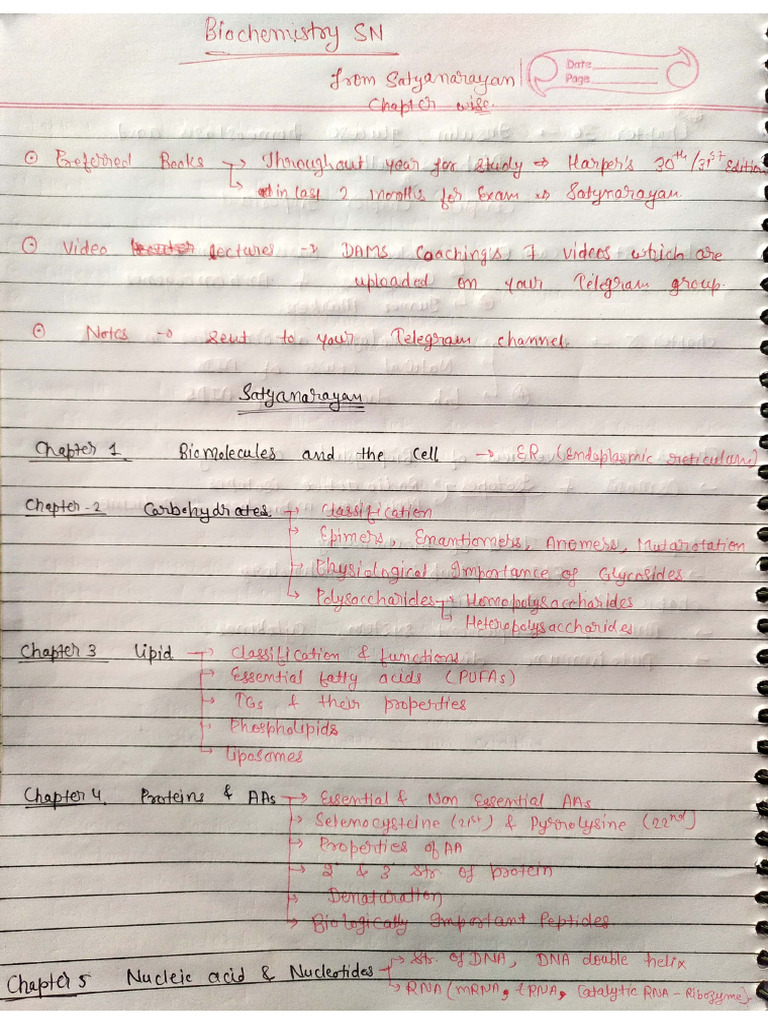 Biochemistry SN
from Satyanarayan
Chapter wise.
Date
Page
⊙ Preferred Books → Throughout year for study ⇒ Harper's 30th/31st Edition
↳ in last 2 months for Exam ⇒ Satynarayan.
⊙ Video lectures → DAMS Coaching's 7 videos which are
uploaded on your Telegram group.
⊙ Notes → sent to your Telegram channel.
Satyanarayan
Chapter 1 Biomolecules and the Cell → ER (Endoplasmic reticulum)
Chapter-2 Carbohydrates → Classification
→ Epimers, Enantiomers, Anomers, Mutarotation
→ Physiological Importance of Glycosides
→ Polysaccharides → Homopolysaccharides
↳ Heteropolysaccharides
Chapter 3 Lipid → Classification & functions
→ Essential fatty acids (PUFAs)
→ TGs & their properties
→ Phospholipids
→ Liposomes
Chapter 4. Proteins & AAs → Essential & Non Essential AAs
→ Selenocysteine (21st) & Pyrrolysine (22nd)
→ Properties of AA
→ 2° & 3 str. of protein
→ Denaturation
→ Biologically Important Peptides
Chapter 5 Nucleic acid & Nucleotides → Str. of DNA, DNA double helix
→ RNA (mRNA, tRNA, Catalytic RNA - Ribozyme)